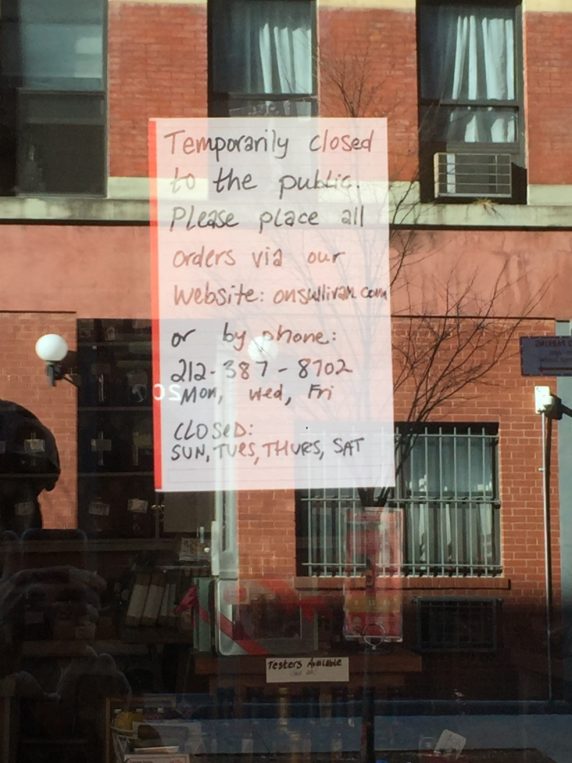 Temporarily closed
to the public.
Please place all
orders via our
website: onsullivan.com
or by phone:
212-387-8702
Mon, Wed, Fri
CLOSED:
SUN, TUES, THURS, SAT
Testers Available